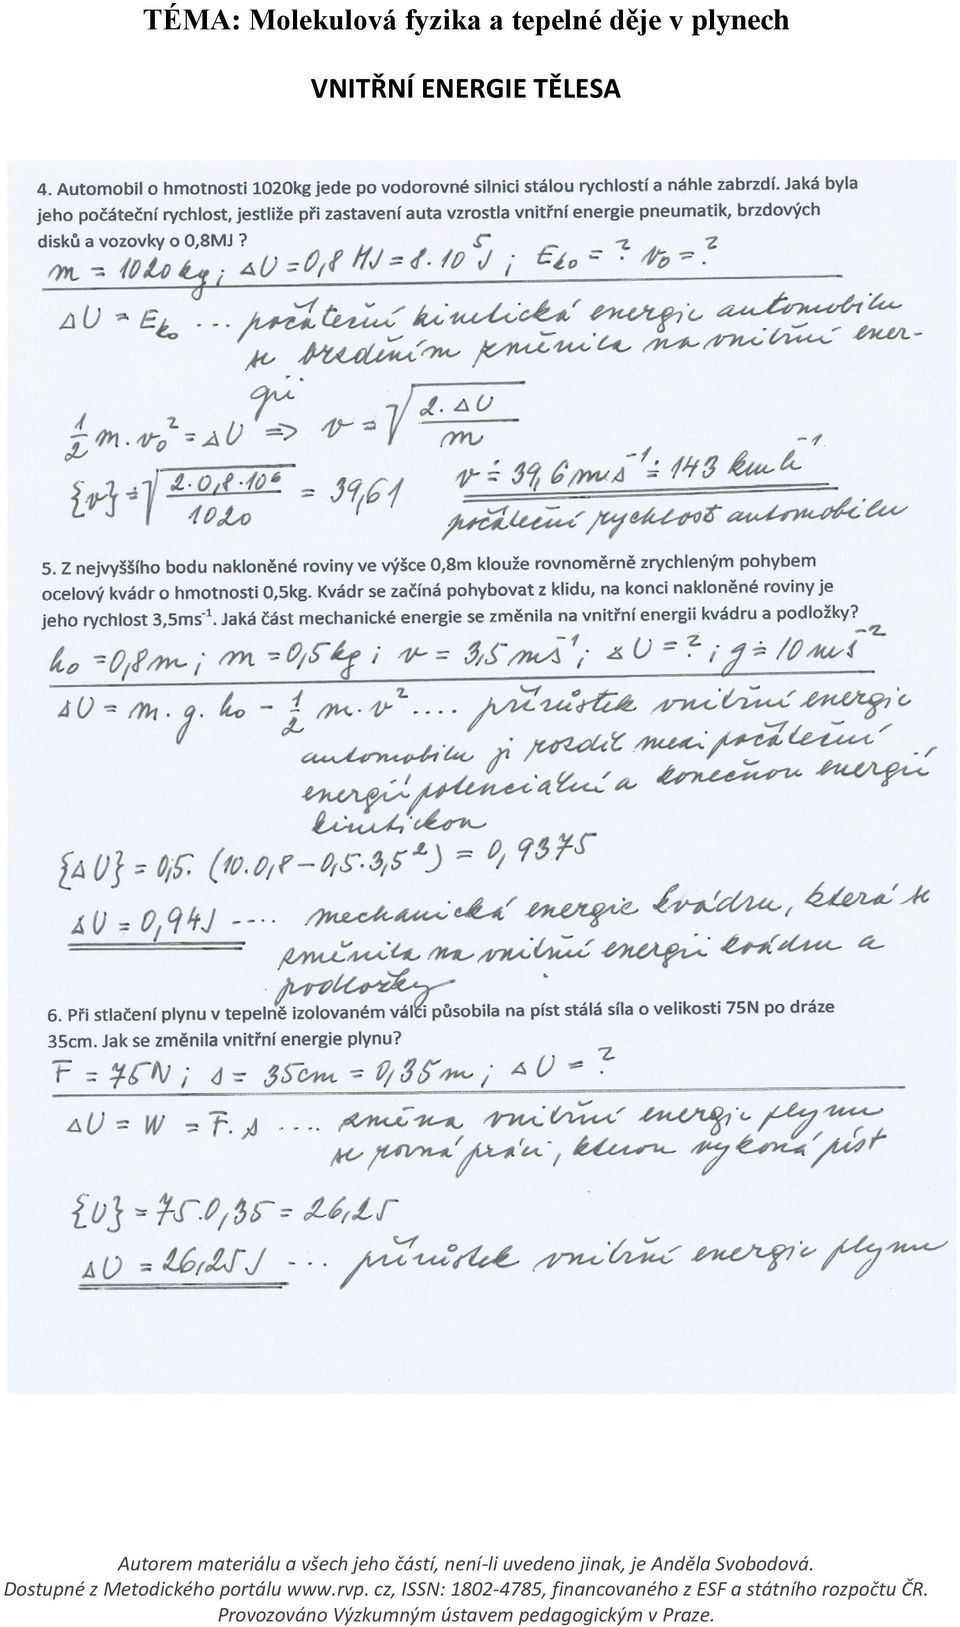 TÉMA: Molekulová fyzika a tepelné děje v plynech
VNITŘNÍ ENERGIE TĚLESA
4. Automobil o hmotnosti 1020kg jede po vodorovné silnici stálou rychlostí a náhle zabrzdí. Jaká byla
jeho počáteční rychlost, jestliže při zastavení auta vzrostla vnitřní energie pneumatik, brzdových
disků a vozovky o 0,8MJ ?
m = 1020 kg ; ΔU = 0,8 MJ = 8.10⁵ J ; Eko = ? v₀ = ?
ΔU = Eko ... počáteční kinetická energie automobilu
se brzděním změnila na vnitřní ener-
gii
1/2 m . v₀² = ΔU => v = √(2 . ΔU / m)
{v} = √(2.0,8.10⁶ / 1020) = 39,61 v ≐ 39,6 ms⁻¹ ≐ 143 kmh⁻¹
počáteční rychlost automobilu
5. Z nejvyššího bodu nakloněné roviny ve výšce 0,8m klouže rovnoměrně zrychleným pohybem
ocelový kvádr o hmotnosti 0,5kg. Kvádr se začíná pohybovat z klidu, na konci nakloněné roviny je
jeho rychlost 3,5ms⁻¹. Jaká část mechanické energie se změnila na vnitřní energii kvádru a podložky?
h₀ = 0,8m ; m = 0,5kg ; v = 3,5 ms⁻¹ ; ΔU = ? ; g ≐ 10 ms⁻²
ΔU = m . g . h₀ - 1/2 m . v² .... přírůstek vnitřní energie
automobilu je rozdíl mezi počáteční
energií potenciální a konečnou energií
kinetickou
{ΔU} = 0,5. (10.0,8 – 0,5.3,5²) = 0,9375
ΔU = 0,94J .... mechanická energie kvádru, která se
změnila na vnitřní energii kvádru a
podložky
6. Při stlačení plynu v tepelně izolovaném válci působila na píst stálá síla o velikosti 75N po dráze
35cm. Jak se změnila vnitřní energie plynu?
F = 75N ; s = 35cm = 0,35 m ; ΔU = ?
ΔU = W = F. s .... změna vnitřní energie plynu
se rovná práci, kterou vykoná píst
{U} = 75.0,35 = 26,25
ΔU = 26,25J ... přírůstek vnitřní energie plynu
Autorem materiálu a všech jeho částí, není-li uvedeno jinak, je Anděla Svobodová.
Dostupné z Metodického portálu www.rvp. cz, ISSN: 1802-4785, financovaného z ESF a státního rozpočtu ČR.
Provozováno Výzkumným ústavem pedagogickým v Praze.